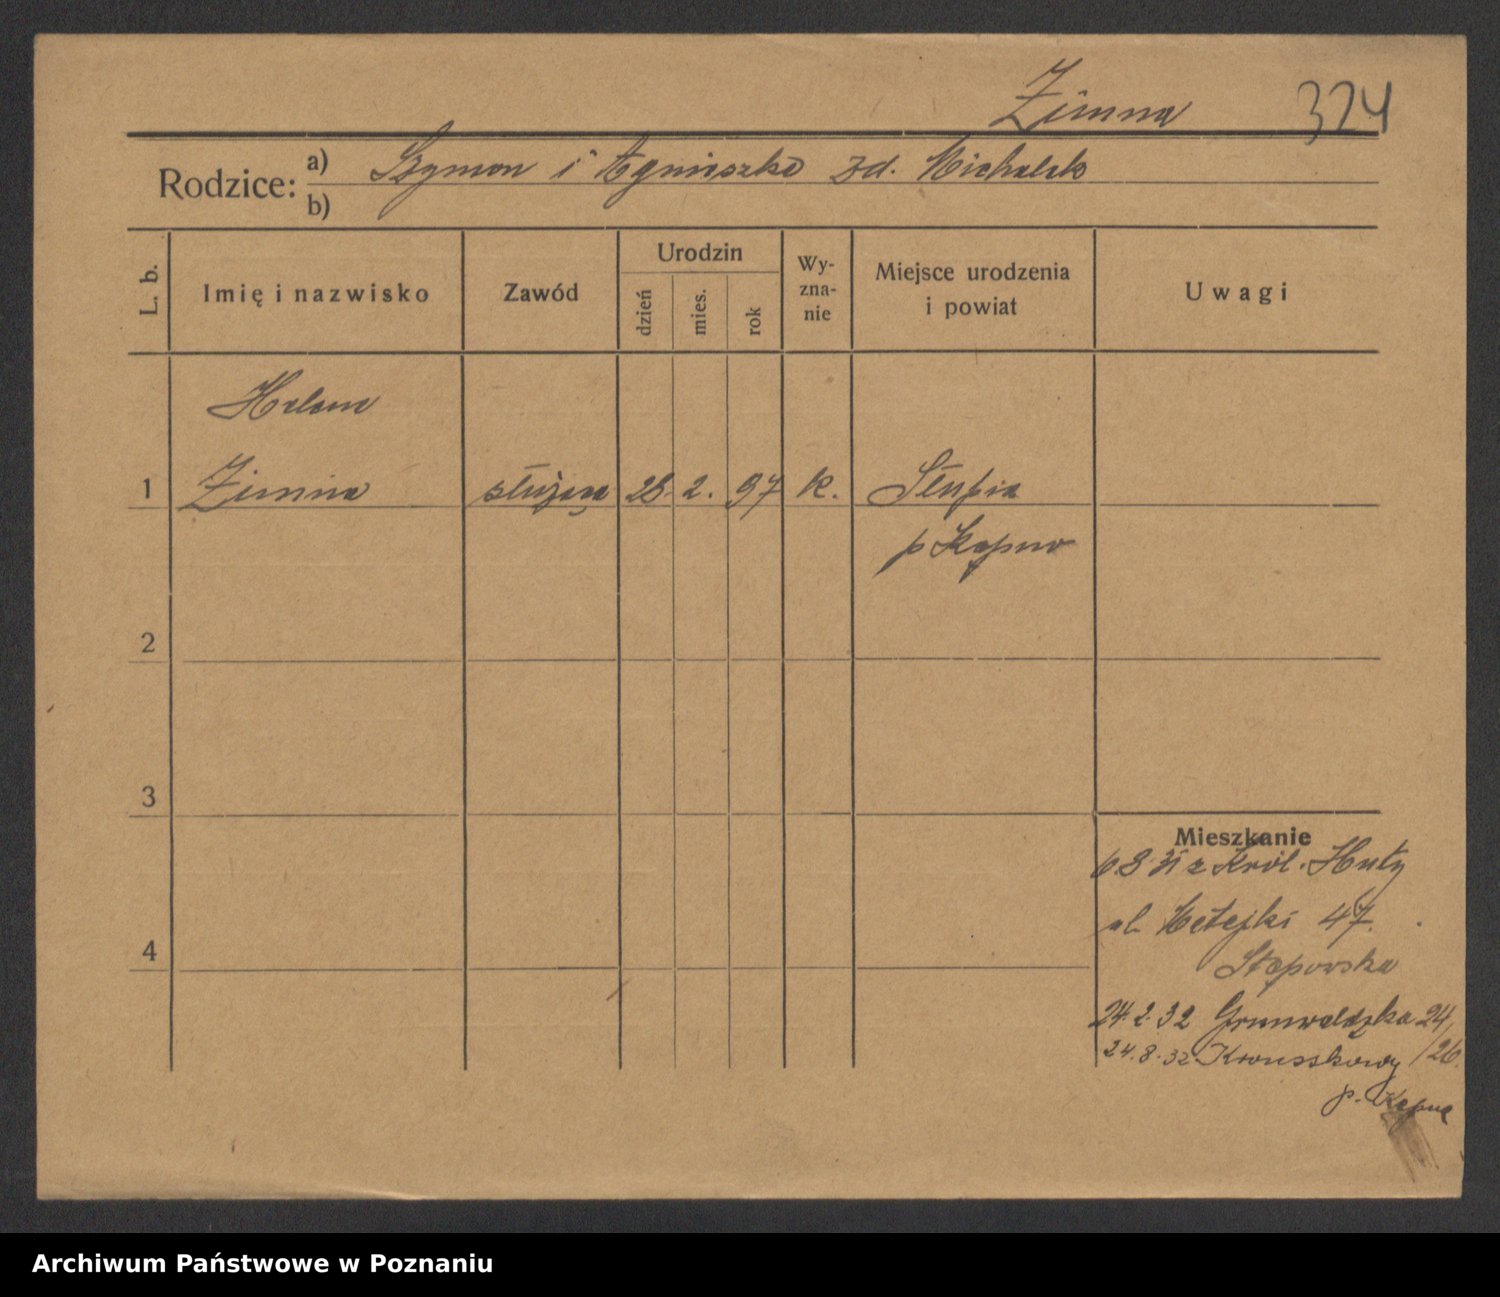 Zimna 324
Rodzice: a) Szymon i Agnieszka zd. Michalak
b)
L. b.
Imię i nazwisko
Zawód
Urodzin
dzień
mies.
rok
Wy-
zna-
nie
Miejsce urodzenia
i powiat
Uwagi
Helena
1 Zimna służąca 28. 2. 97 k. Słupia
p Kępno
2
3
4
Mieszkanie
6 8 31 z Król. Huty
ul. Matejki 47.
24.2.32 Grunwaldzka 24/
24.8.32 /26
p. Kępna
Archiwum Państwowe w Poznaniu